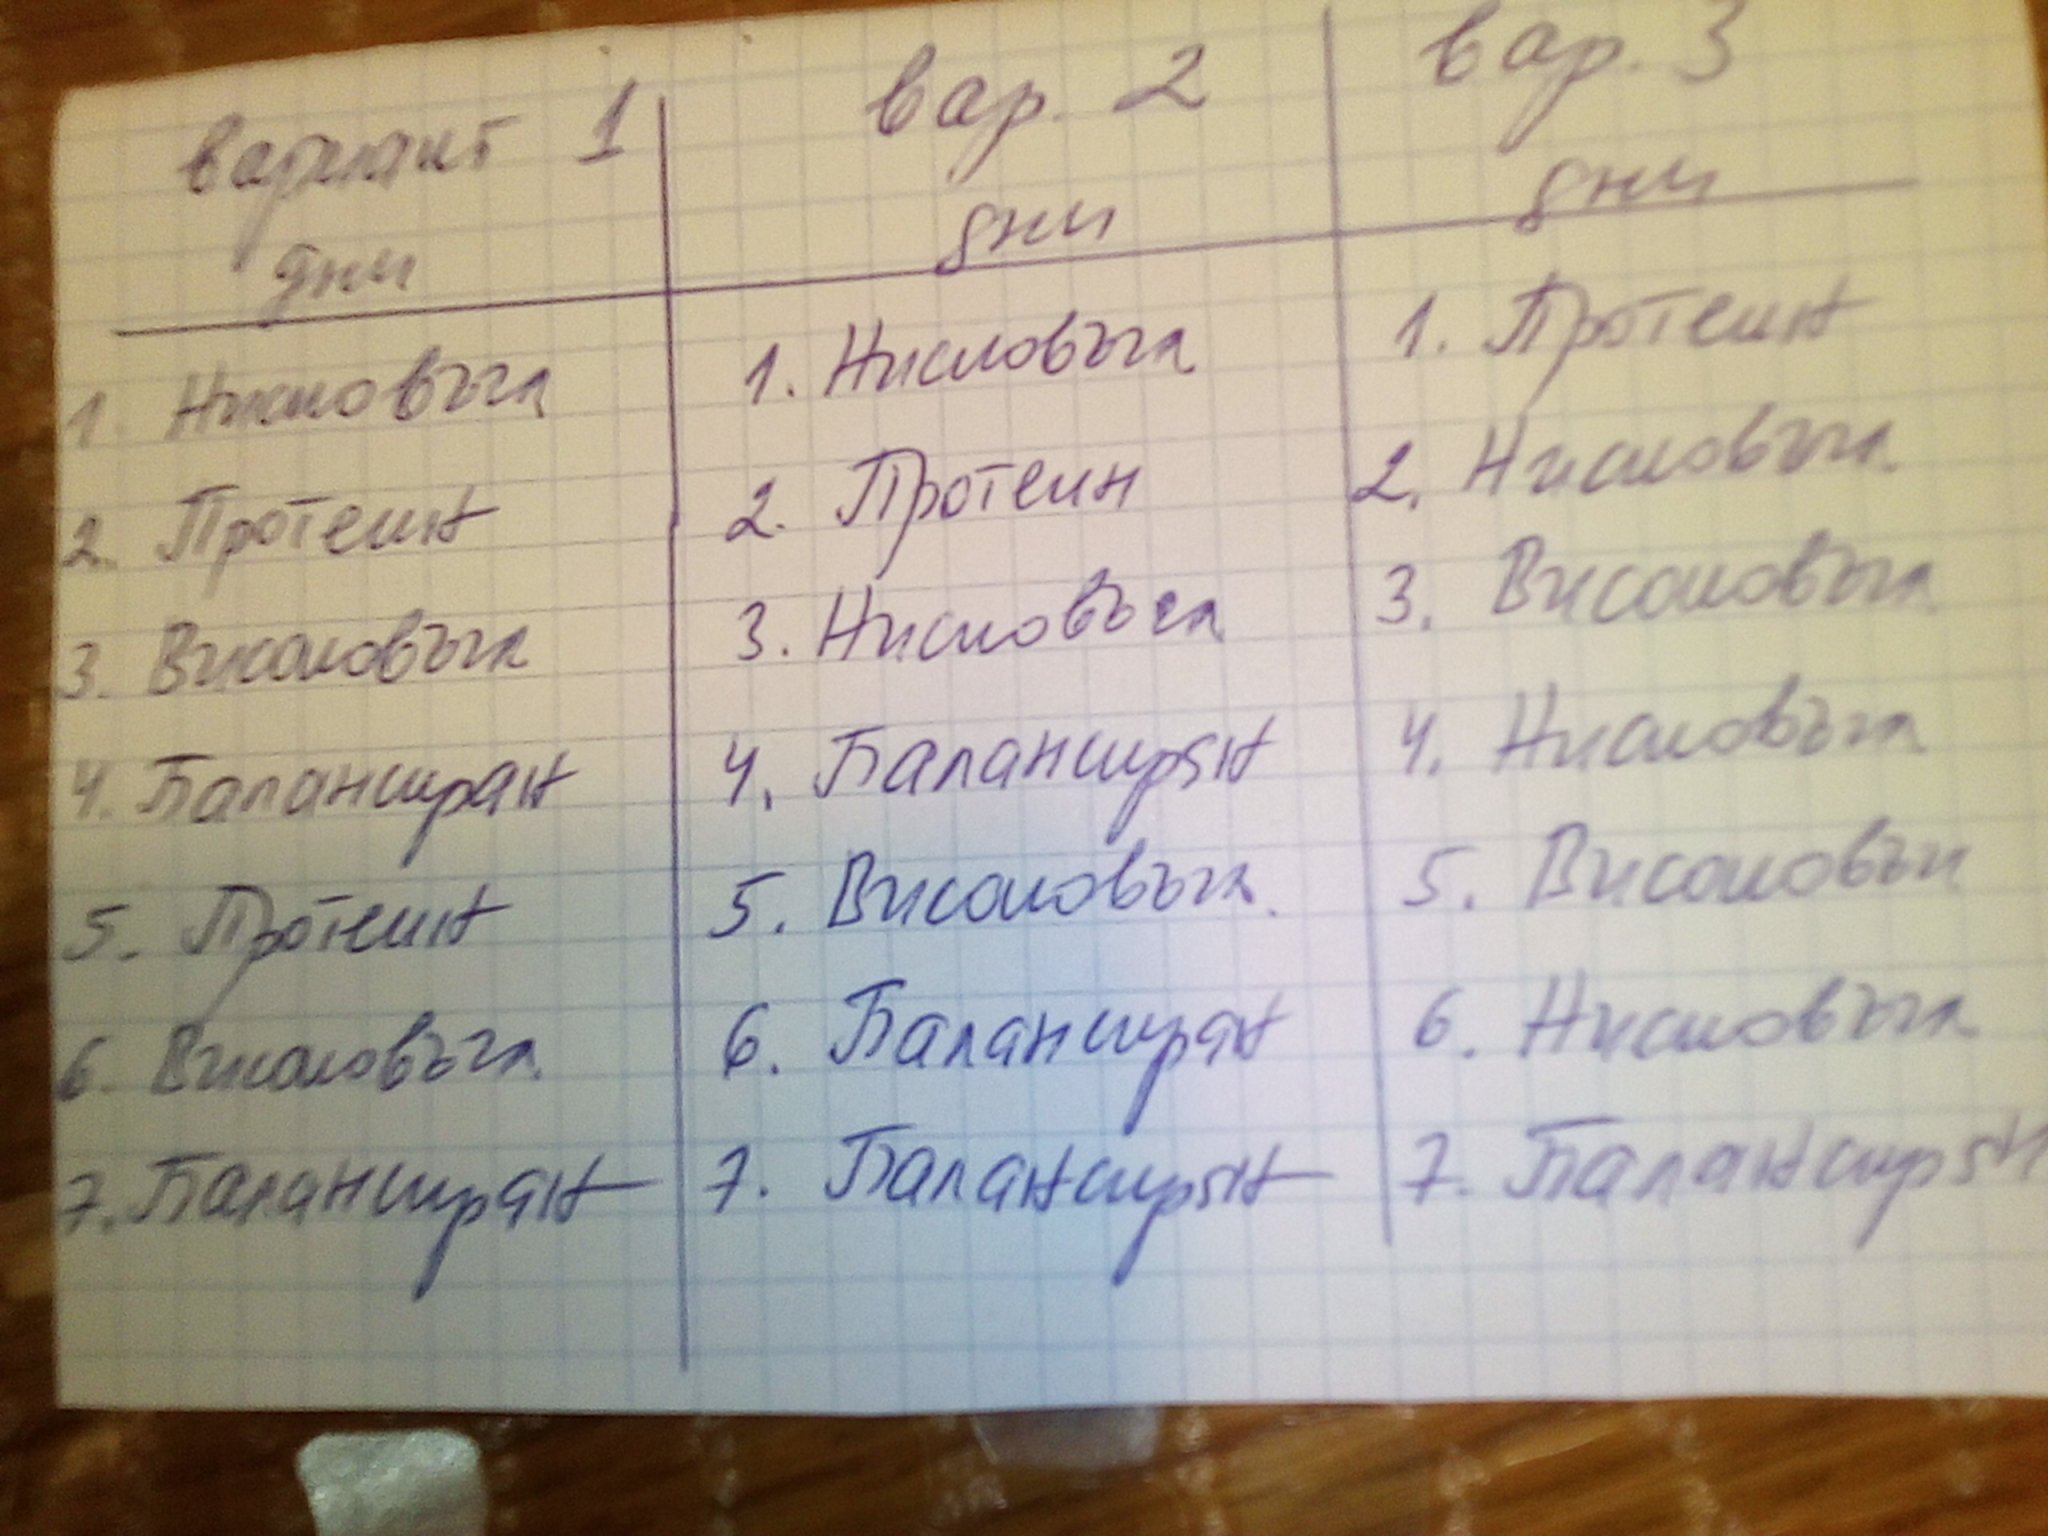 Вариант 1
дни
1. Нисковъгл
2. Протеин
3. Високовъгл
4. Балансиран
5. Протеин
6. Високовъгл.
7. Балансиран
вар. 2
дни
1. Нисковъгл.
2. Протеин
3. Нисковъгл.
4. Балансиран
5. Високовъгл.
6. Балансиран
7. Балансиран
вар. 3
дни
1. Протеин
2. Нисковъгл.
3. Високовъгл.
4. Нисковъгл.
5. Високовъгл
6. Нисковъгл.
7. Балансиран